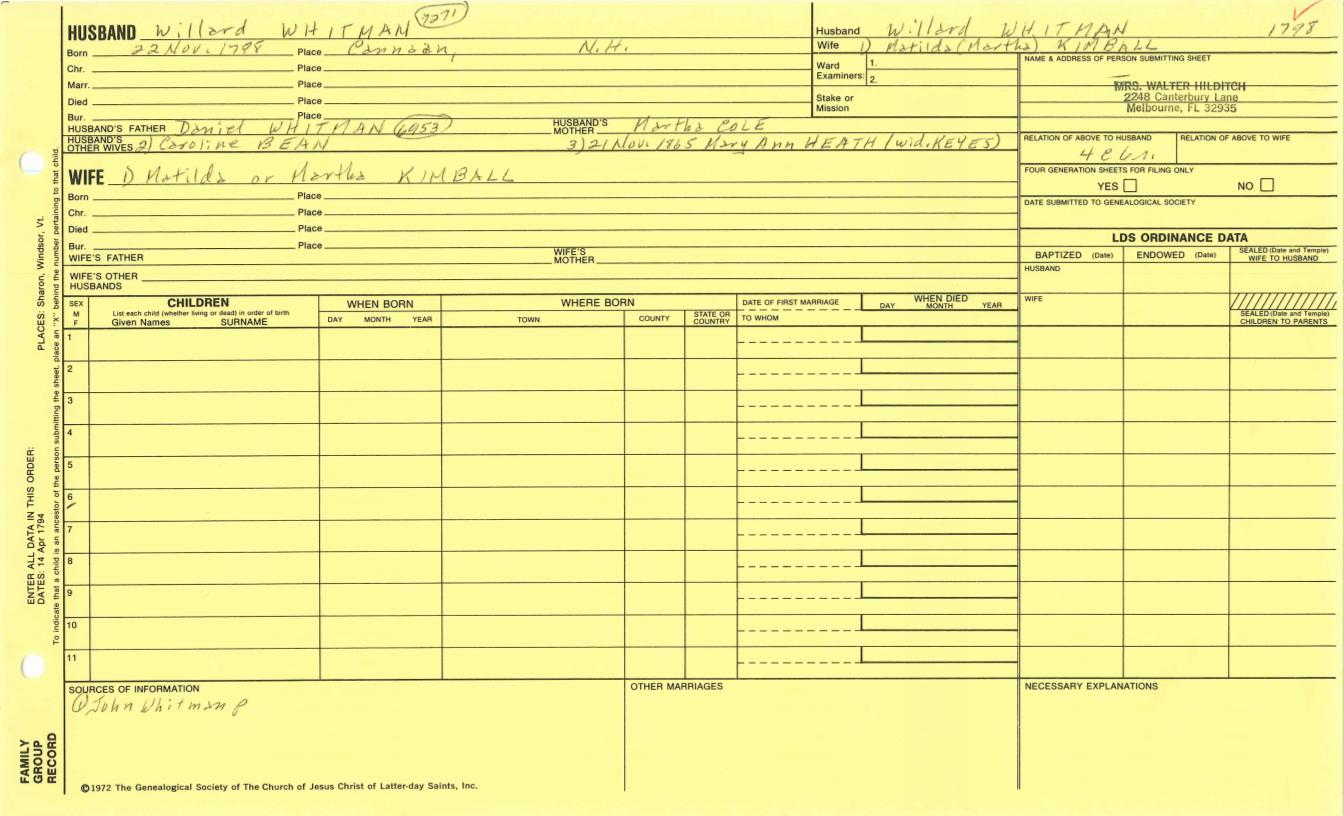 HUSBAND Willard WHITMAN 7271
Born 22 Nov. 1798 Place Cannaan, N.H.
Chr. Place
Marr. Place
Died Place
Bur. Place
HUSBAND'S FATHER Daniel WHITMAN (6953) HUSBAND'S MOTHER Martha COLE
HUSBAND'S OTHER WIVES 2) Caroline BEAN 3) 21 Nov. 1865 Mary Ann HEATH (wid. KEYES)
WIFE 1) Matilda or Martha KIMBALL
Born Place
Chr. Place
Died Place
Bur. Place
WIFE'S FATHER WIFE'S MOTHER
WIFE'S OTHER HUSBANDS
Husband Willard WHITMAN 1798
Wife 1) Matilda (Martha) KIMBALL
Ward Examiners: 1.
2.
Stake or Mission
NAME & ADDRESS OF PERSON SUBMITTING SHEET
MRS. WALTER HILDITCH
2248 Canterbury Lane
Melbourne, FL 32935
RELATION OF ABOVE TO HUSBAND RELATION OF ABOVE TO WIFE
FOUR GENERATION SHEETS FOR FILING ONLY
YES NO
DATE SUBMITTED TO GENEALOGICAL SOCIETY
LDS ORDINANCE DATA
BAPTIZED (Date) ENDOWED (Date) SEALED (Date and Temple) WIFE TO HUSBAND
HUSBAND
WIFE
SEALED (Date and Temple) CHILDREN TO PARENTS
SEX M F
CHILDREN
List each child (whether living or dead) in order of birth
Given Names SURNAME
WHEN BORN
DAY MONTH YEAR
WHERE BORN
TOWN COUNTY STATE OR COUNTRY
DATE OF FIRST MARRIAGE
TO WHOM
WHEN DIED
DAY MONTH YEAR
1
2
3
4
5
6
7
8
9
10
11
SOURCES OF INFORMATION
① John Whitman p
OTHER MARRIAGES
NECESSARY EXPLANATIONS
©1972 The Genealogical Society of The Church of Jesus Christ of Latter-day Saints, Inc.
FAMILY GROUP RECORD
ENTER ALL DATA IN THIS ORDER:
DATES: 14 Apr 1794 PLACES: Sharon, Windsor, Vt.
To indicate that a child is an ancestor of the person submitting the sheet, place an "X" behind the number pertaining to that child.